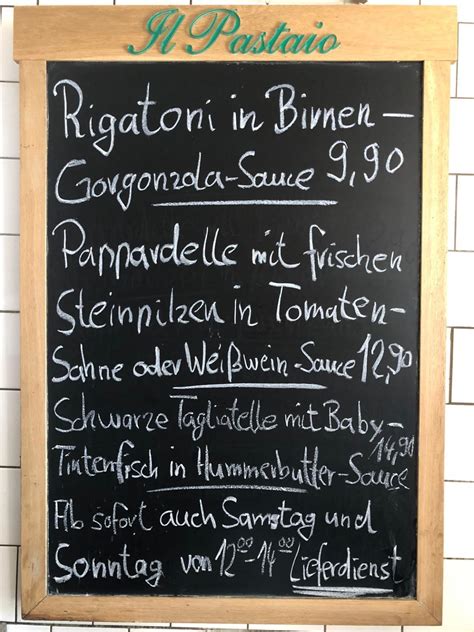 Il Pastaio
Rigatoni in Birnen-
Gorgonzola-Sauce 9,90
Pappardelle mit frischen
Steinpilzen in Tomaten-
Sahne oder Weißwein-Sauce 12,90
Schwarze Tagliatelle mit Baby-
14,90
Tintenfisch in Hummerbutter-Sauce
Ab sofort auch Samstag und
Sonntag von 12⁰⁰-14⁰⁰ Lieferdienst